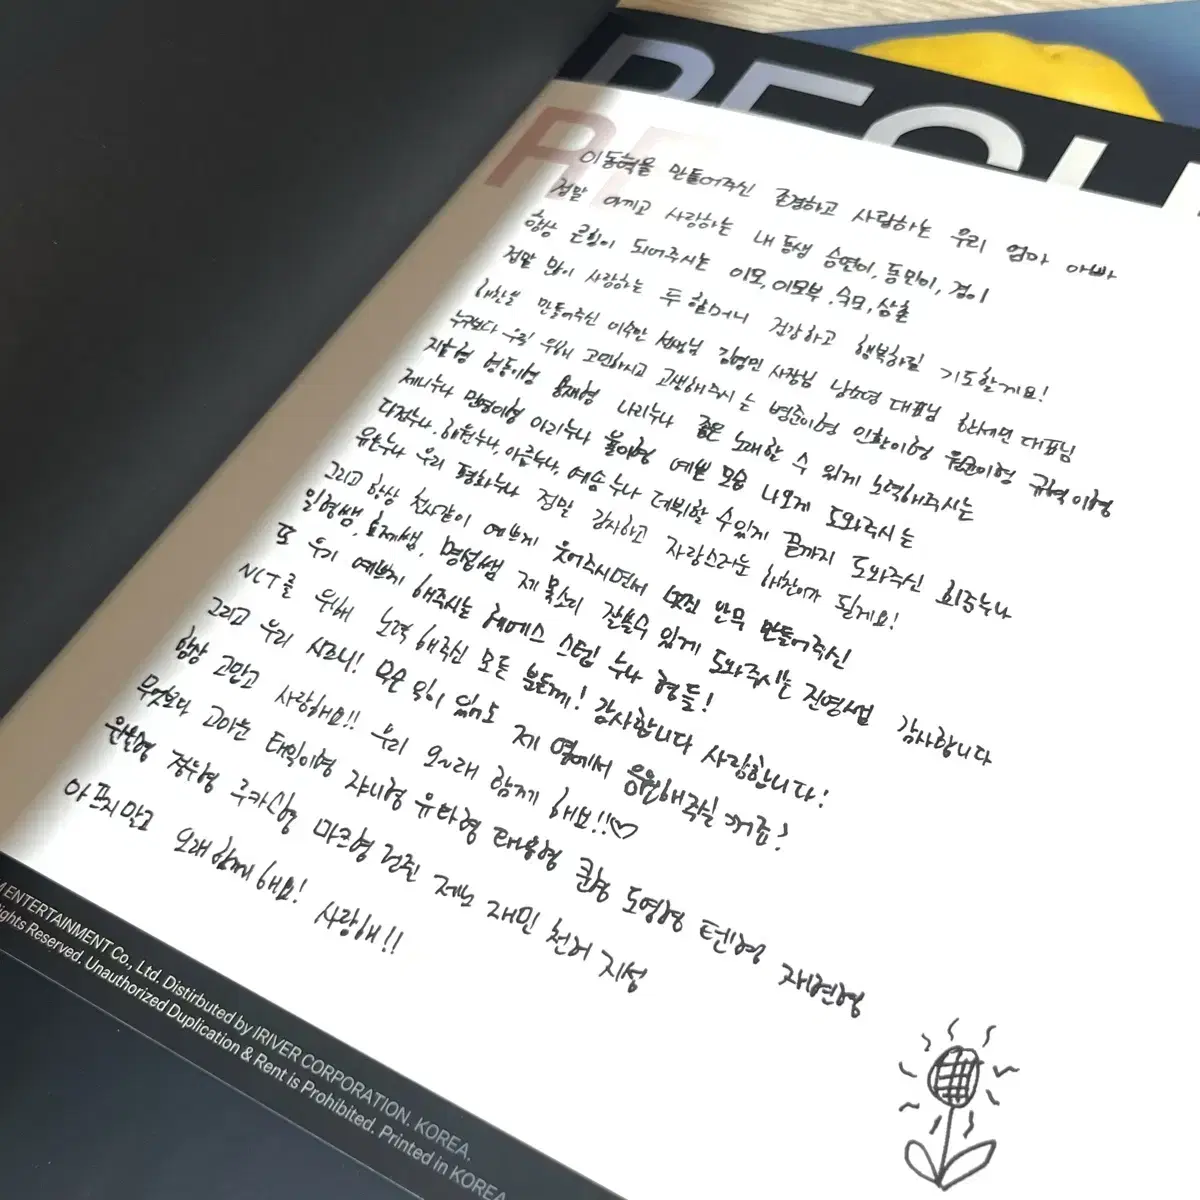 REGUL
RE
이동혁을 만들어주신 존경하고 사랑하는 우리 엄마 아빠
정말 아끼고 사랑하는 내 동생 승연이, 동민이, 겸이
항상 큰힘이 되어주시는 이모, 이모부, 숙모, 삼촌
정말 많이 사랑하는 두 할머니 건강하고 행복하길 기도할게요!
해찬을 만들어주신 이수만 선생님 김영민 사장님 남소영 대표님 한세민 대표님
누구보다 우릴 위해 고민하시고 고생해주시는 병준이형 인학이형 규혁이형
지호형 영동이형 용재형 나리누나 좋은 노래할 수 있게 노력해주시는
제니누나 민영이형 아리누나 예쁜 모습 나오게 도와주시는
다정누나, 혜원누나, 아름누나, 예솔누나 데뷔할 수 있게 끝까지 도와주신 최중누나
유은누나 우리 평화누나 정말 감사하고 자랑스러운 해찬이가 될게요!
그리고 항상 천사같이 예쁘게 웃어주시면서 멋진 안무 만들어주신
일형쌤, 효제쌤, 명섭쌤 제 목소리 잘쓸수 있게 도와주시는 진영쌤 감사합니다
또 우리 예쁘게 해주시는 헤메스 스텝 누나 형들!
NCT를 위해 노력해주신 모든 분들께! 감사합니다 사랑합니다!
그리고 우리 시즈니! 무슨 일이 있어도 제 옆에서 응원해주실 거죠?
항상 고맙고 사랑해요!! 우리 오~래 함께 해요!!♡
무엇보다 고마운 태일이형 쟈니형 유타형 태용형 쿤형 도영형 텐형 재현형
윈윈형 정우형 루카스형 마크형 런쥔 제노 재민 천러 지성
아프지말고 오래 함께해요! 사랑해!!
M ENTERTAINMENT Co., Ltd. Distirbuted by IRIVER CORPORATION. KOREA.
ights Reserved. Unauthorized Duplication & Rent is Prohibited. Printed in KOREA